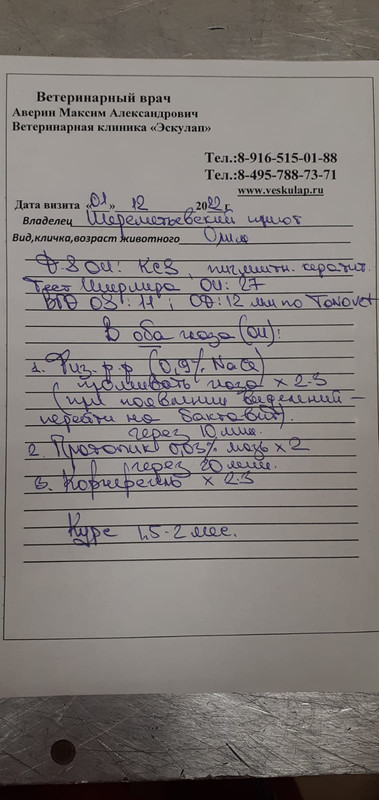 Ветеринарный врач
Аверин Максим Александрович
Ветеринарная клиника «Эскулап»
Тел.:8-916-515-01-88
Тел.:8-495-788-73-71
www.veskulap.ru
Дата визита «01» 12 2022 г.
Владелец Шереметьевский приют
Вид,кличка,возраст животного
D.S OU: КСЗ, пигментн. кератит.
Тест Ширмера OU: 27
ВГД OS: 11; OD: 12 мм по Tonovet
В оба глаза (OU):
1. Физ. р-р (0,9% NaCl)
промывать глаза x 2-3
(при появлении выделений -
перейти на Бактавит).
через 10 мин.
2. Протопик 0,03% мазь x 2
через 20 мин.
3. Корнерегель x 2-3
Курс 1,5-2 мес.